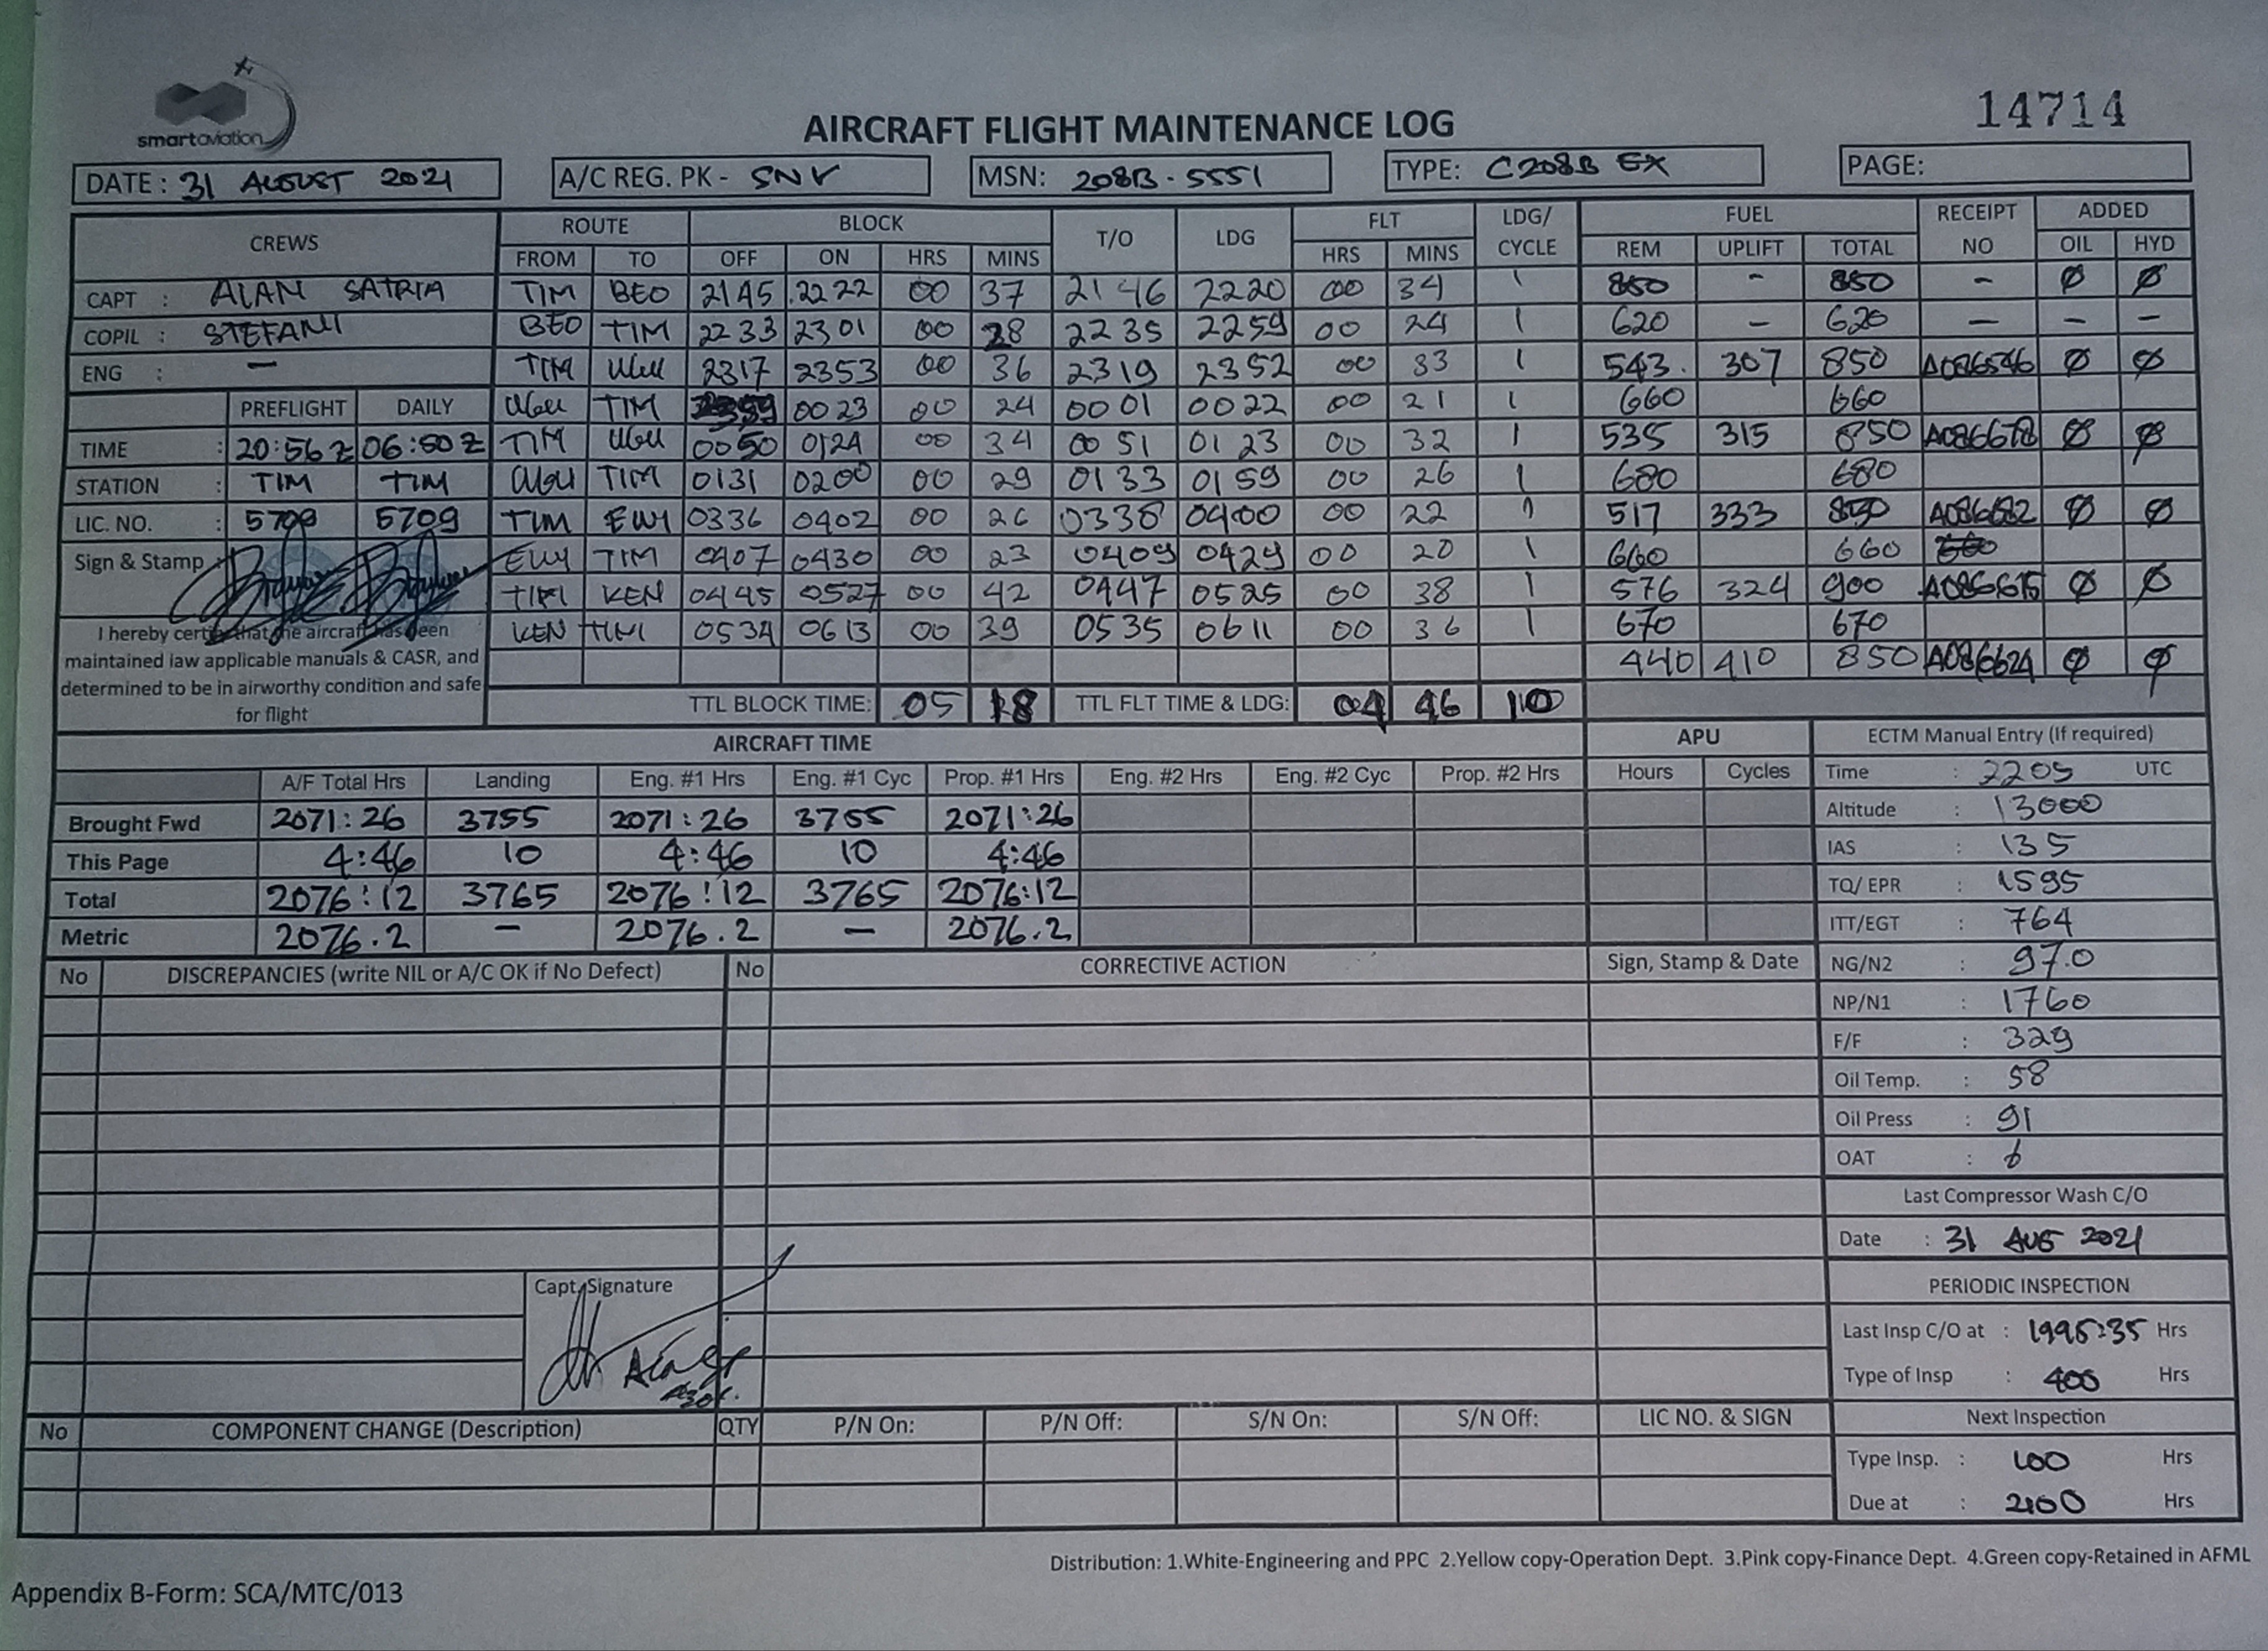 smartaviation
14714
AIRCRAFT FLIGHT MAINTENANCE LOG
DATE : 31 AUGUST 2021 A/C REG. PK - SNV MSN: 208B-5551 TYPE: C208B EX PAGE:
CREWS ROUTE BLOCK T/O LDG FLT LDG/ CYCLE FUEL RECEIPT NO ADDED
FROM TO OFF ON HRS MINS HRS MINS REM UPLIFT TOTAL OIL HYD
CAPT : ALAN SATRIA TIM BEO 2145 2222 00 37 2146 2220 00 34 1 850 - 850 - Ø Ø
COPIL : STEFANI BEO TIM 2233 2301 00 28 2235 2259 00 24 1 620 - 620 - - -
ENG : - TIM UGU 2317 2353 00 36 2319 2352 00 33 1 543. 307 850 A086546 Ø Ø
PREFLIGHT DAILY UGU TIM 2359 0023 00 24 0001 0022 00 21 1 660 660
TIME : 20:56 Z 06:50 Z TIM UGU 0050 0124 00 34 0051 0123 00 32 1 535 315 850 Ø Ø
STATION : TIM TIM UGU TIM 0131 0200 00 29 0133 0159 00 26 1 680 680
LIC. NO. : 5709 5709 TIM 0336 0402 00 26 0338 0400 00 22 1 517 333 850 Ø Ø
Sign & Stamp : TIM 0407 0430 00 23 0409 0429 00 20 1 660 660
TIM KEN 0445 0527 00 42 0447 0525 00 38 1 576 324 900 A086615 Ø Ø
KEN TIM 0534 0613 00 39 0535 0611 00 36 1 670 670
440 410 850 A086624 Ø Ø
I hereby certify that the aircraft has been
maintained law applicable manuals & CASR, and
determined to be in airworthy condition and safe
for flight
TTL BLOCK TIME: 05 18 TTL FLT TIME & LDG: 04 46 10
AIRCRAFT TIME APU ECTM Manual Entry (If required)
A/F Total Hrs Landing Eng. #1 Hrs Eng. #1 Cyc Prop. #1 Hrs Eng. #2 Hrs Eng. #2 Cyc Prop. #2 Hrs Hours Cycles Time : 2205 UTC
Brought Fwd 2071:26 3755 2071:26 3755 2071:26 Altitude : 13000
This Page 4:46 10 4:46 10 4:46 IAS : 135
Total 2076:12 3765 2076:12 3765 2076:12 TQ/ EPR : 1595
Metric 2076.2 - 2076.2 - 2076.2 ITT/EGT : 764
No DISCREPANCIES (write NIL or A/C OK if No Defect) No CORRECTIVE ACTION Sign, Stamp & Date NG/N2 : 97.0
NP/N1 : 1760
F/F : 329
Oil Temp. : 58
Oil Press : 91
OAT : 6
Last Compressor Wash C/O
Date : 31 AUG 2021
Capt. Signature
PERIODIC INSPECTION
Last Insp C/O at : 1995:35 Hrs
Type of Insp : 400 Hrs
No COMPONENT CHANGE (Description) QTY P/N On: P/N Off: S/N On: S/N Off: LIC NO. & SIGN Next Inspection
Type Insp. : 100 Hrs
Due at : 2100 Hrs
Distribution: 1.White-Engineering and PPC 2.Yellow copy-Operation Dept. 3.Pink copy-Finance Dept. 4.Green copy-Retained in AFML
Appendix B-Form: SCA/MTC/013